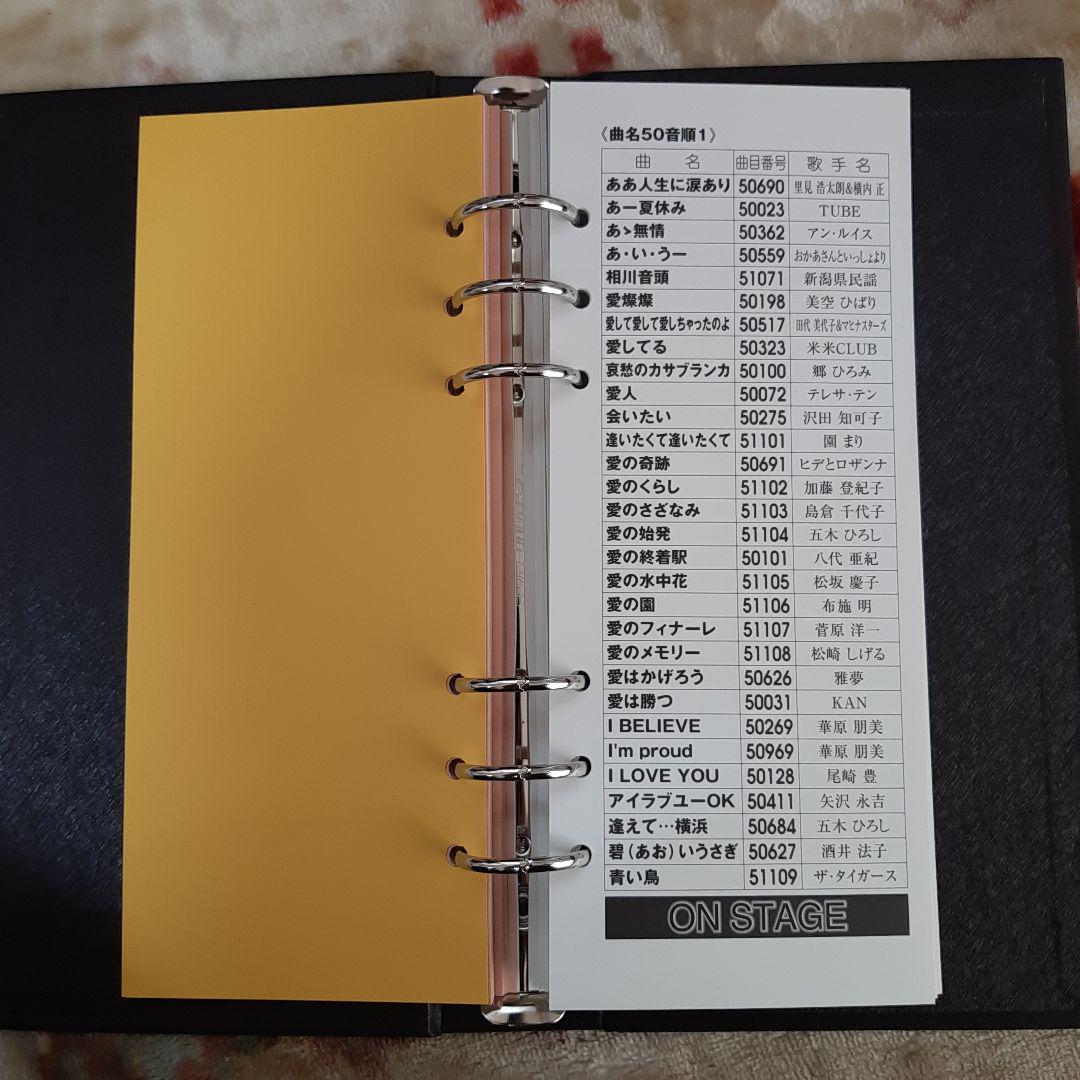 《曲名50音順1》
曲名 曲目番号 歌手名
ああ人生に涙あり 50690 里見 浩太朗&横内 正
あー夏休み 50023 TUBE
あゝ無情 50362 アン・ルイス
あ・い・うー 50559 おかあさんといっしょより
相川音頭 51071 新潟県民謡
愛燦燦 50198 美空 ひばり
愛して愛して愛しちゃったのよ 50517 田代 美代子&マヒナスターズ
愛してる 50323 米米CLUB
哀愁のカサブランカ 50100 郷 ひろみ
愛人 50072 テレサ・テン
会いたい 50275 沢田 知可子
逢いたくて逢いたくて 51101 園 まり
愛の奇跡 50691 ヒデとロザンナ
愛のくらし 51102 加藤 登紀子
愛のさざなみ 51103 島倉 千代子
愛の始発 51104 五木 ひろし
愛の終着駅 50101 八代 亜紀
愛の水中花 51105 松坂 慶子
愛の園 51106 布施 明
愛のフィナーレ 51107 菅原 洋一
愛のメモリー 51108 松崎 しげる
愛はかげろう 50626 雅夢
愛は勝つ 50031 KAN
I BELIEVE 50269 華原 朋美
I'm proud 50969 華原 朋美
I LOVE YOU 50128 尾崎 豊
アイラブユーOK 50411 矢沢 永吉
逢えて…横浜 50684 五木 ひろし
碧(あお)いうさぎ 50627 酒井 法子
青い鳥 51109 ザ・タイガース
ON STAGE